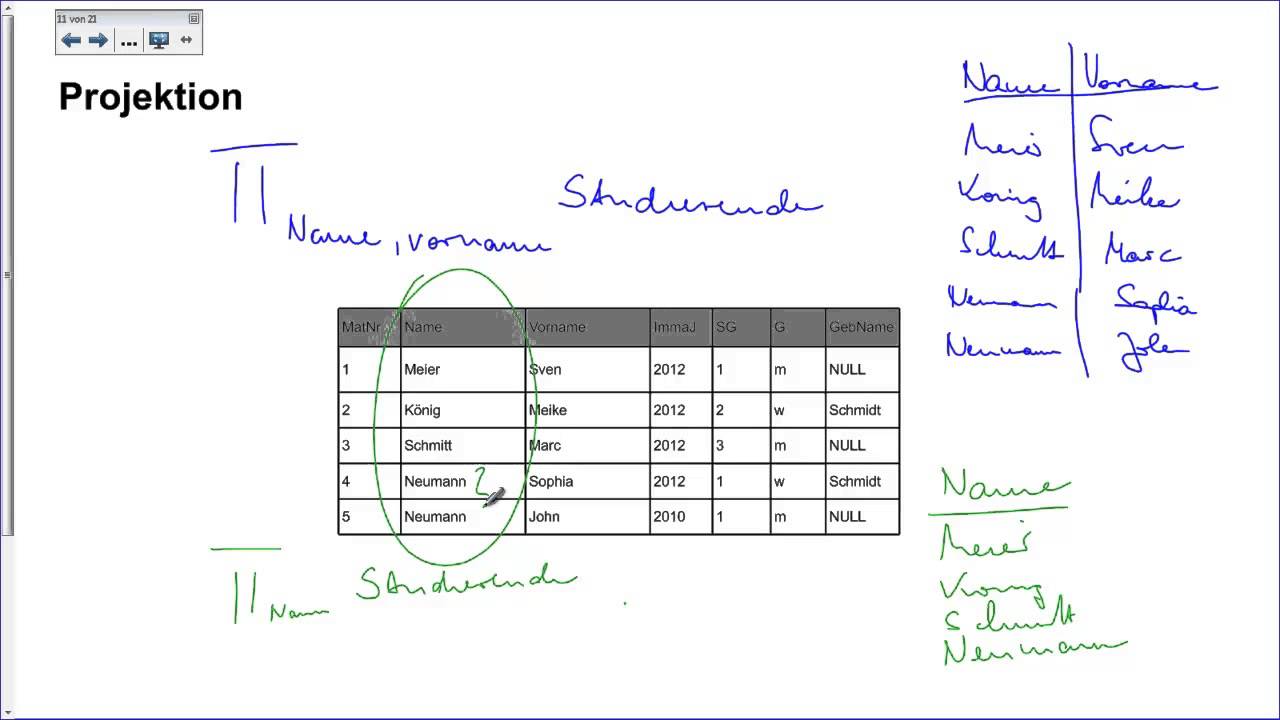 11 von 21
Projektion
Π Name, Vorname Studierende
Name Vorname
Meier Sven
König Meike
Schmitt Marc
Neumann Sophia
Neumann John
MatNr Name Vorname ImmaJ SG G GebName
1 Meier Sven 2012 1 m NULL
2 König Meike 2012 2 w Schmidt
3 Schmitt Marc 2012 3 m NULL
4 Neumann Sophia 2012 1 w Schmidt
5 Neumann John 2010 1 m NULL
Π Name Studierende
Name
Meier
König
Schmitt
Neumann